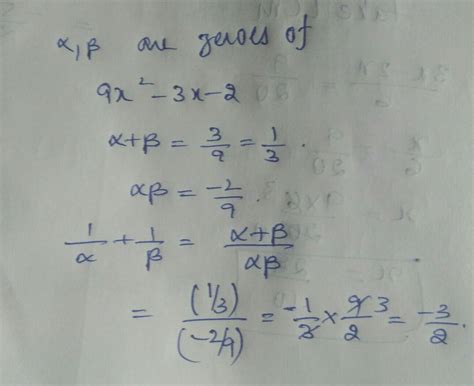 α, β are zeroes of
9x² - 3x - 2
α+β = 3/9 = 1/3 .
αβ = -2/9 .
1/α + 1/β = α+β/αβ
= (1/3)/(-2/9) = -1/3 × 9/2 3 = -3/2 .